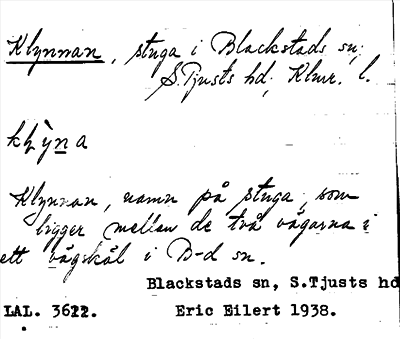 Klynnan, stuga i Blackstads sn,
S.Tjusts hd, Klmr. l.
Klynnan, namn på stuga, som
ligger mellan de två vägarna i
ett vägskäl i B-d sn.
Blackstads sn, S.Tjusts hd
LAL. 3622. Eric Eilert 1938.